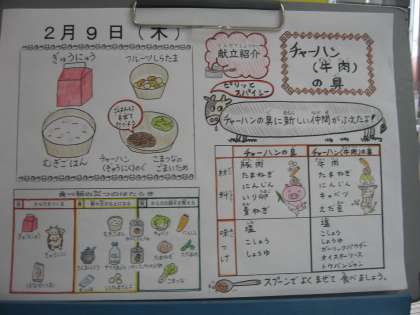 2月9日(木)
ぎゅうにゅう
フルーツしらたま
ごはんに
まぜて
むぎごはん
チャーハン
(ぎゅうにく)のぐ
こまつなの
ごまいため
食べ物の三つのはたらき
献立紹介
チャーハン
(牛肉)
の具
ピリッと
スパイシー
チャーハンの具に新しい仲間がふえたよ!
チャーハンの具
チャーハン(牛肉)の具
材料
豚肉
たまねぎ
にんじん
いり卵
青ねぎ
牛肉
たまねぎ
にんじん
キャベツ
えだ豆
味つけ
塩
こしょう
しょうゆ
塩
こしょう
しょうゆ
ガーリックパウダー
オイスターソース
トウバンジャン
スプーンでよくまぜて食べましょう。